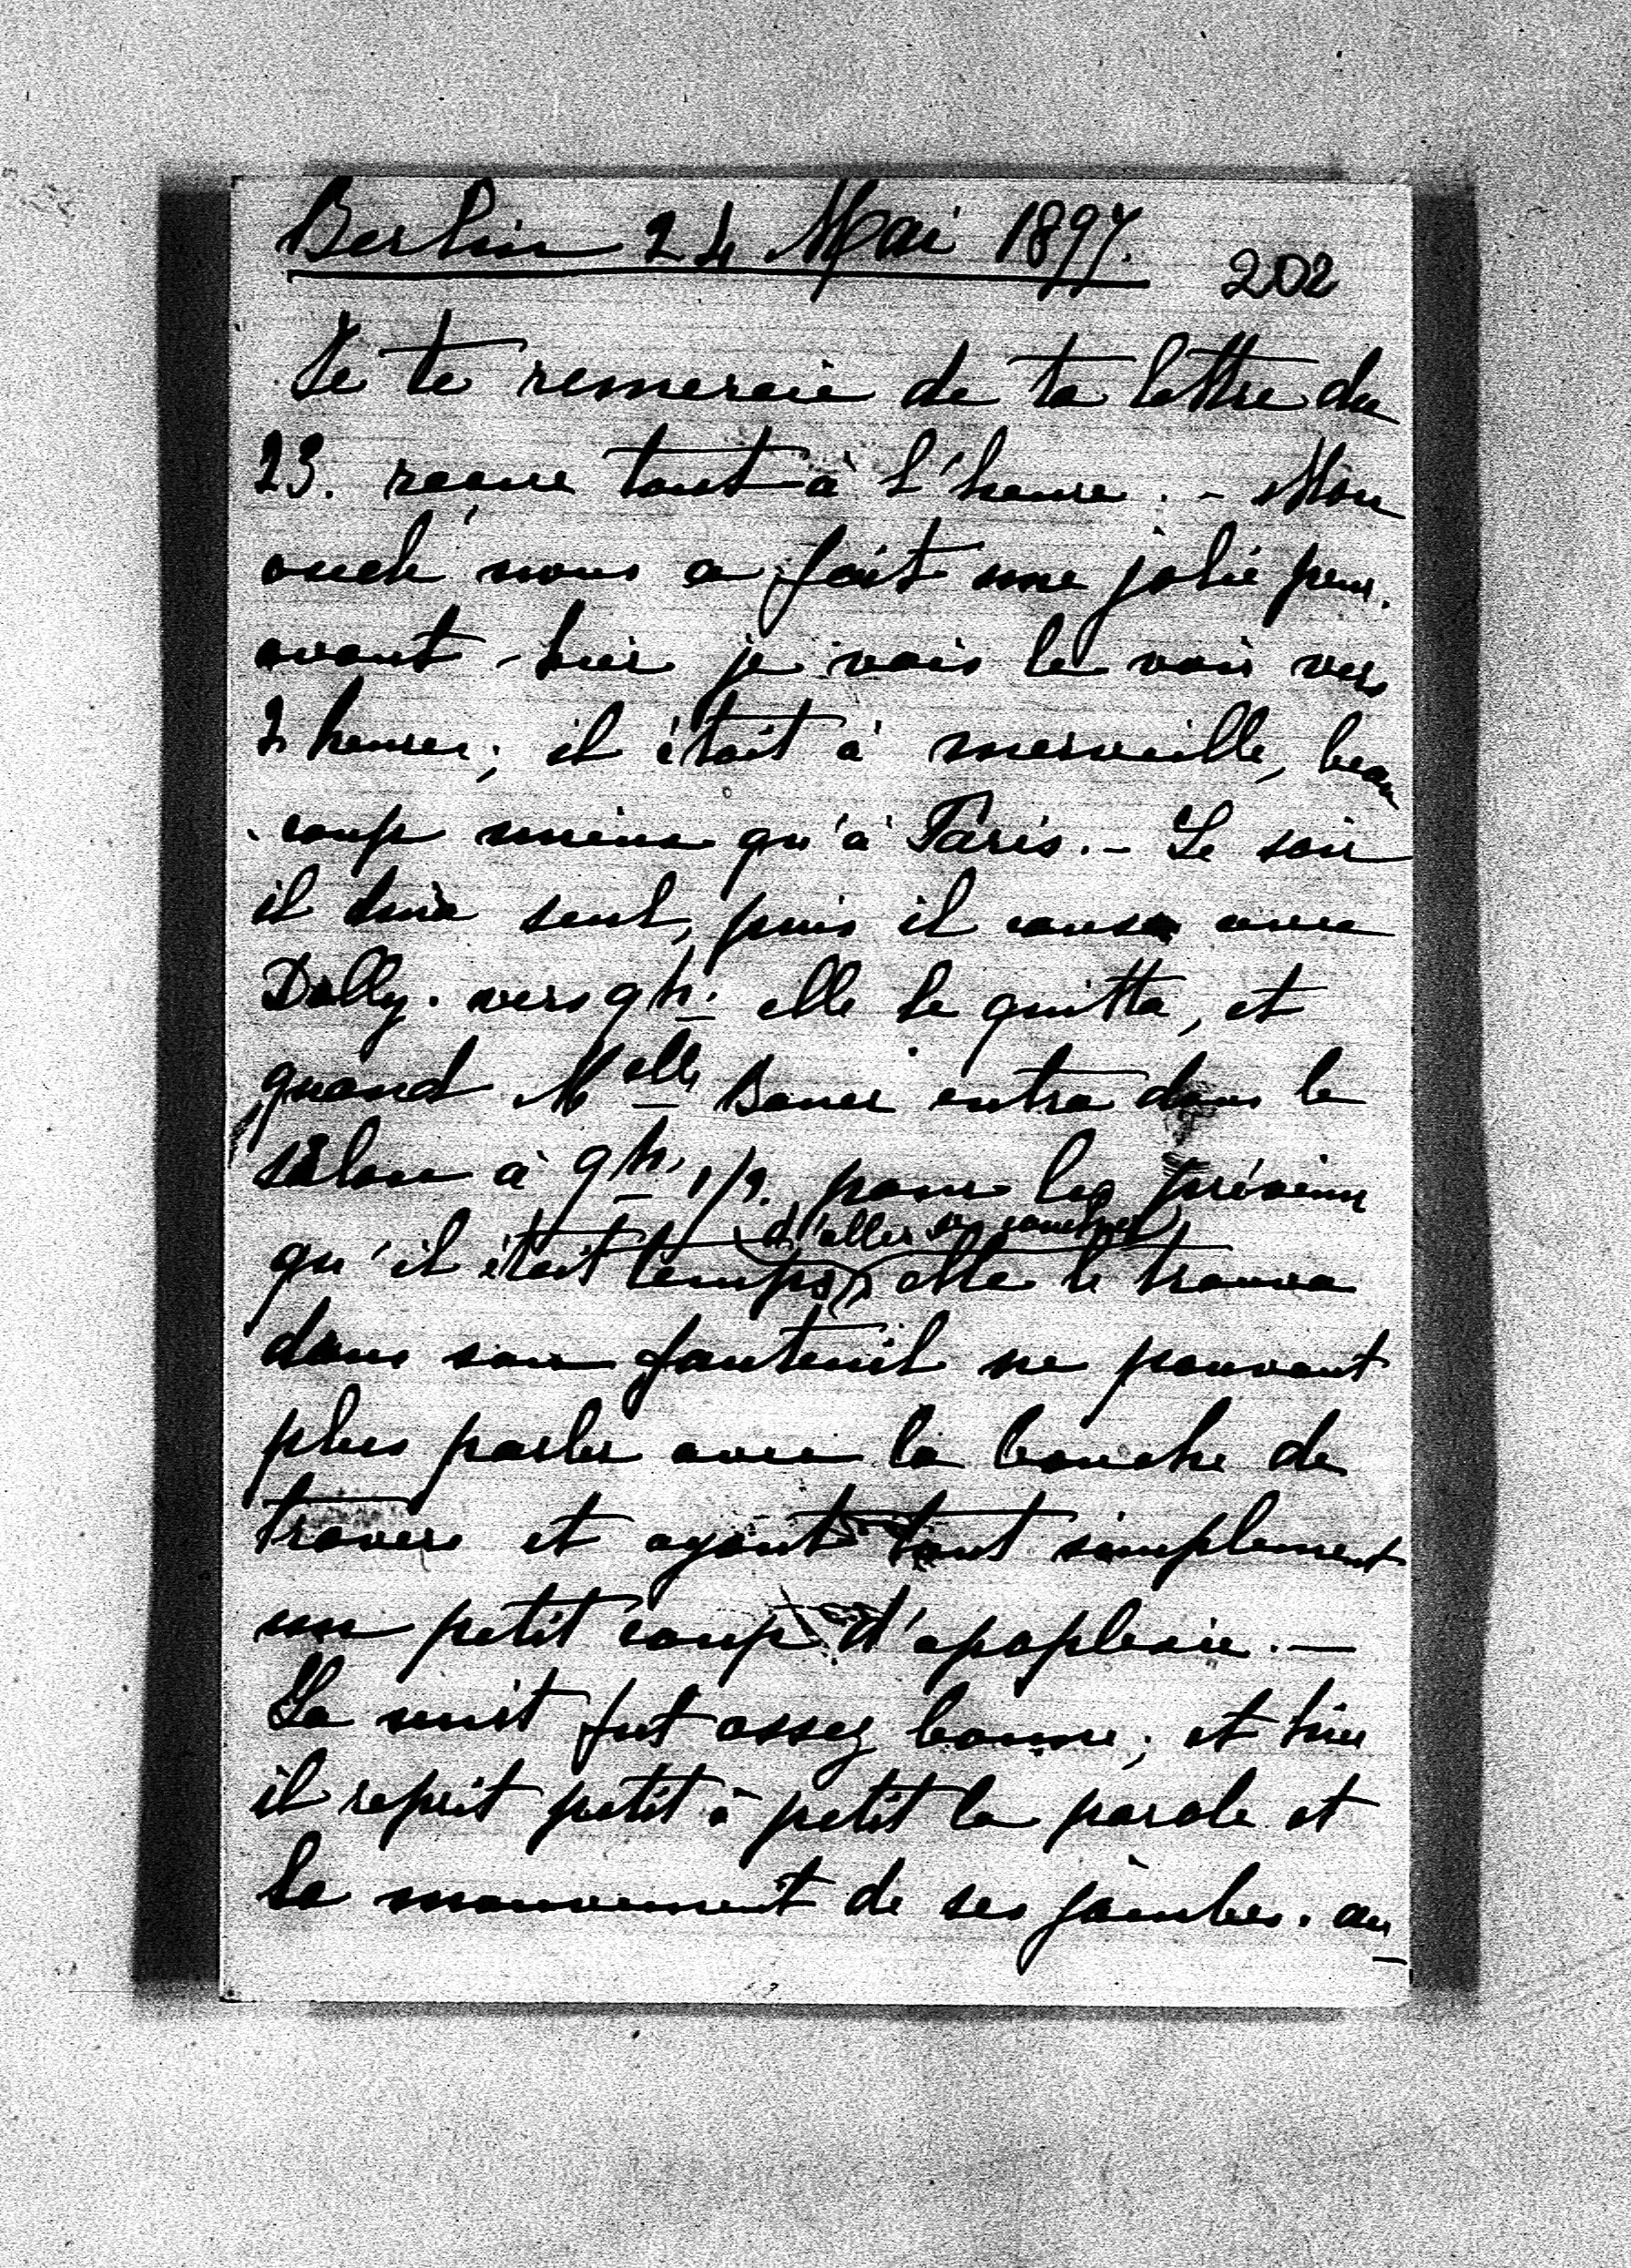 Berlin 24 Mai 1897.
202
Je te remercie de ta lettre du
23. recue tout à l'heure. - Mon
oncle nous a fait une jolie peur.
avant-hier je vais le voir vers
2 heures; il était à merveille, beau
coup mieux qu'à Paris. - Le soir
il dina seul, puis il causa avec
Dolly. vers 9h. elle le quitta, et
quand Melle Bauer entra dans le
salon à 9h. 1/2. pour le prévenir
d'aller se coucher
qu'il était temps elle le trouva
dans son fauteuil ne pouvant
plus parler avec la bouche de
travers et ayant tout simplement
un petit coup d'apoplexie. —
La nuit fut assez bonne; et hier
il reprit petit à petit la parole et
le mouvement de ses jambes. au